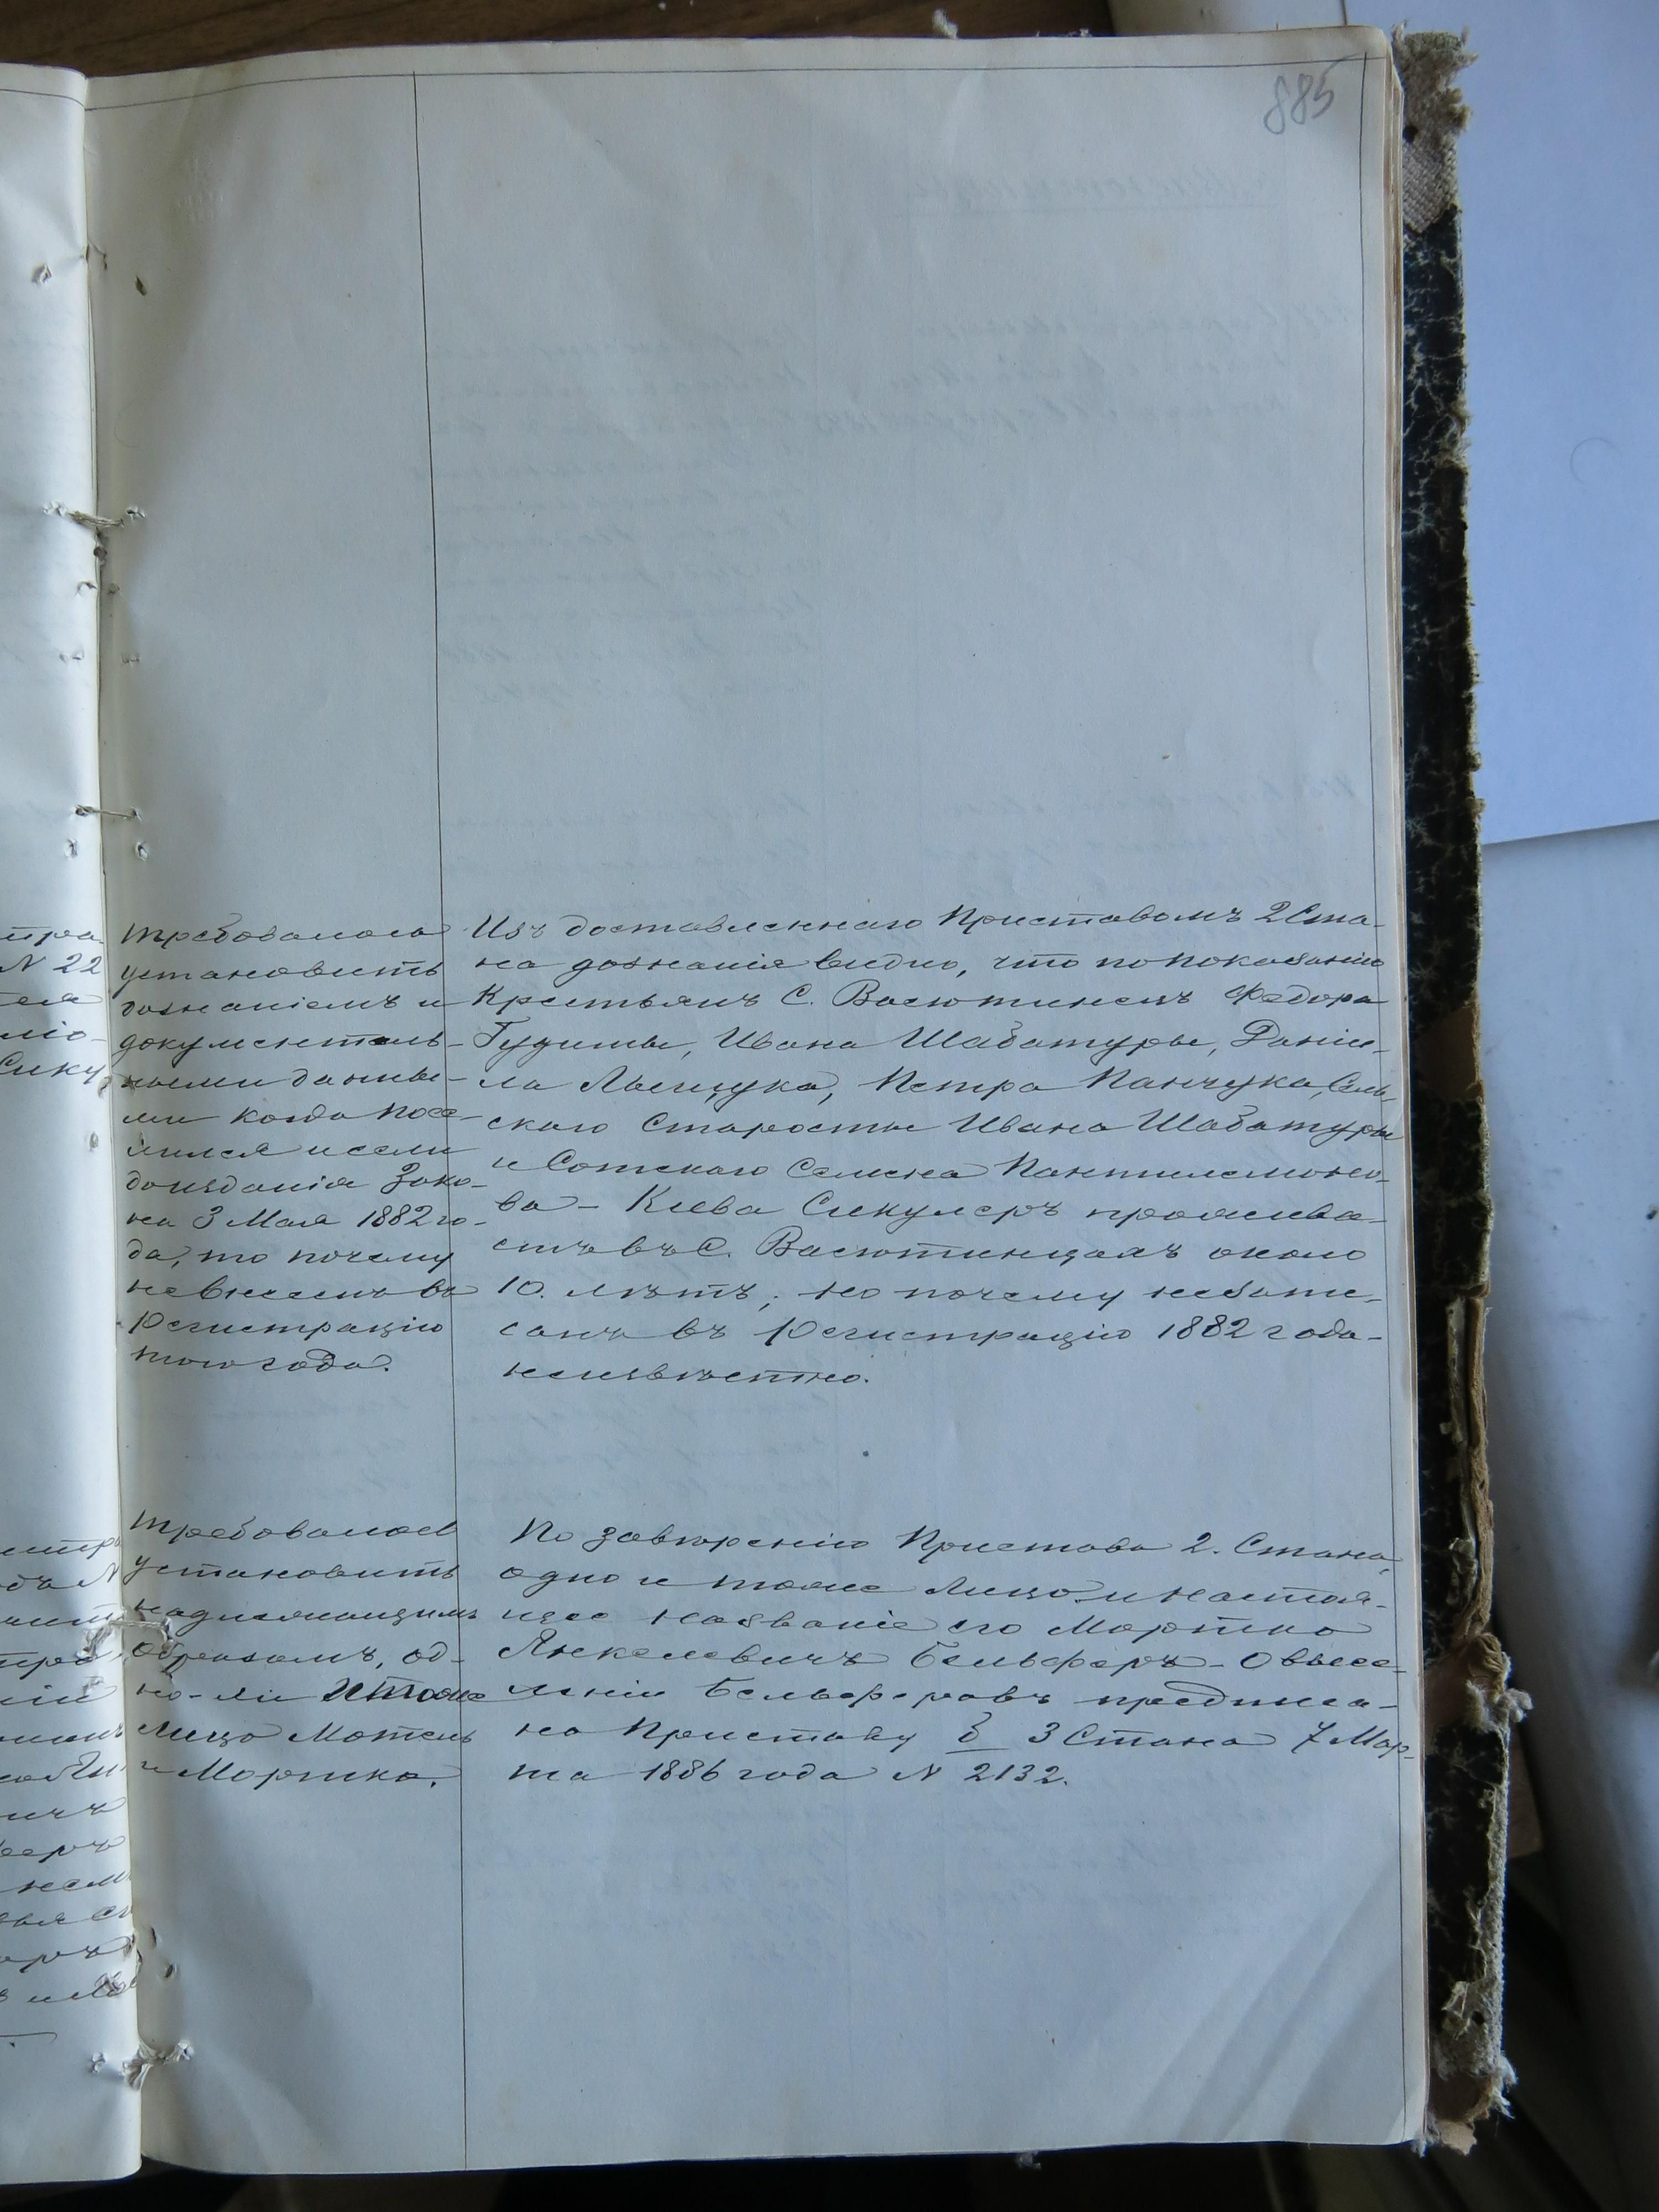 885
Требовалось
установить
дознаніемъ и
документаль-
ными данны-
ми когда посе-
лился и если
доизданія Зако-
на 3 Мая 1882 го-
да, то почему
невнесенъ въ
Регистрацію
того года.
Изъ доставленнаго Приставомъ 2 Ста-
на дознанія видно, что попоказанію
Крестьянъ С. Васютинецъ Федора
Гудимы, Ивана Шабатуры, Дани-
ла Лыщука, Петра Панчука, Сель-
скаго Старосты Ивана Шабатуры
и Сотскаго Семена Пантилемоно-
ва - Киева Сикулеръ прожива-
етъ въ С. Васютинцахъ около
10. лѣтъ, но почему незапи-
санъ въ Регистрацію 1882 года -
неизвѣстно.
Требовалось
установить
надлежащимъ
образомъ, од-
но-ли И тоже
Лицо Мотель
и Мортко.
По завѣренію Пристава 2. Стана,
одно и тоже Лицо и настоя-
щее названіе его Мортко
Янкелевичъ Бельферъ - О высе-
леніи Бельферовъ предписа-
но Приставу 3 Стана 7 Мар-
та 1886 года N 2132.
N 22